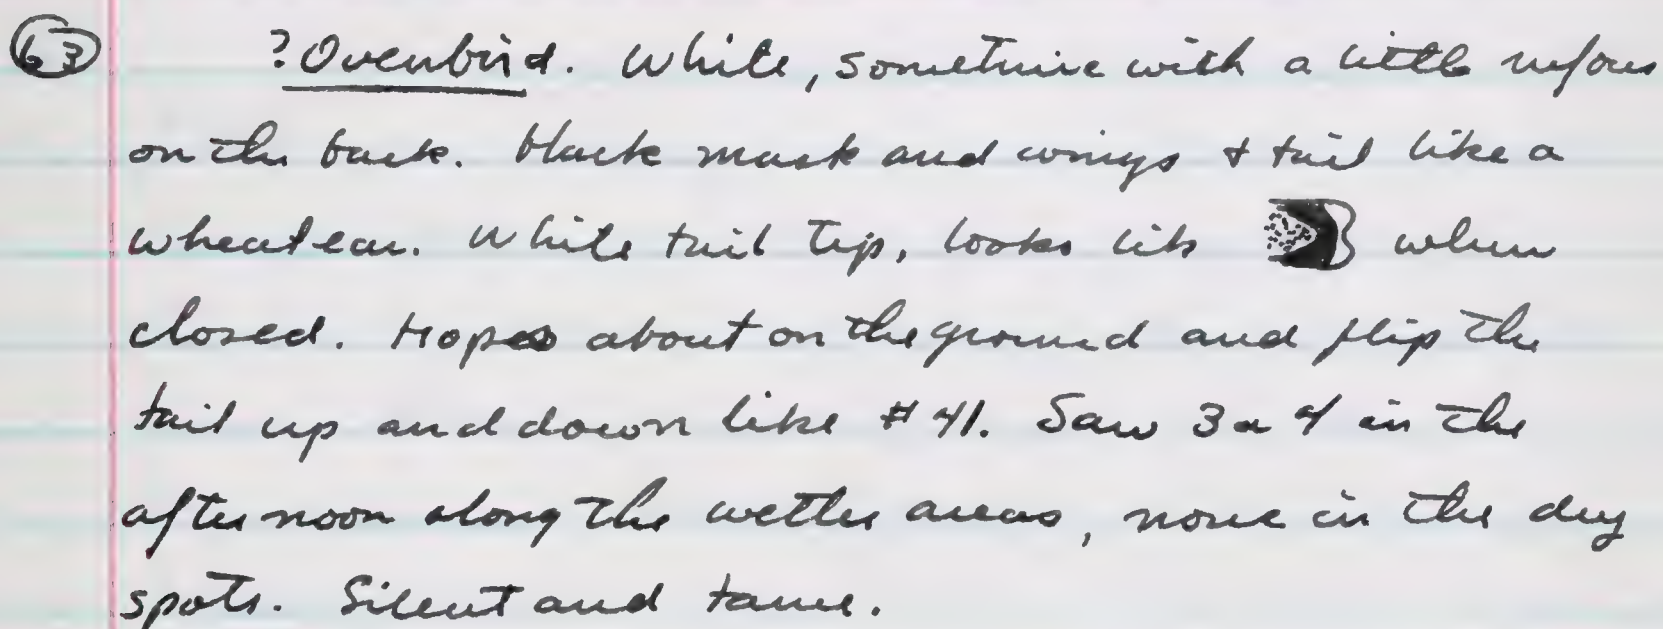 63 ?Ovenbird. White, sometime with a little rufous
on the back. black mask and wings & tail like a
wheatear. White tail tip, looks like when
closed. Hops about on the ground and flip the
tail up and down like #41. Saw 3 or 4 in the
afternoon along the wetter areas, none in the dry
spots. Silent and tame.